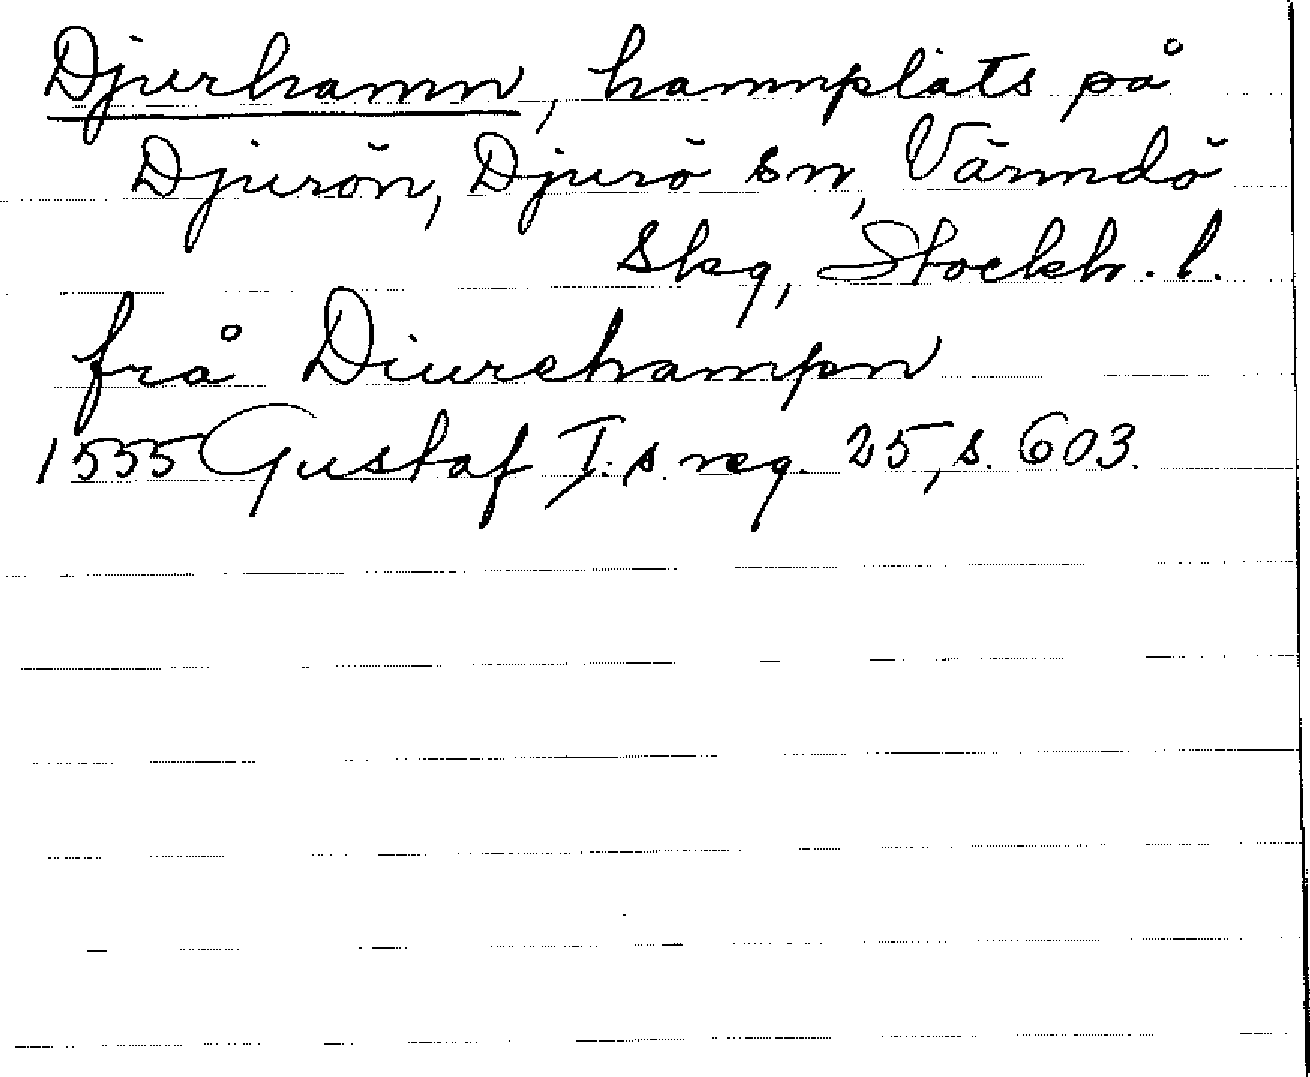 Djurhamn, hamnplats på
Djurön, Djurö sn, Värmdö
Skg, Stockh. l.
från Diurehampn
1555 Gustaf I.s. reg. 25, s. 603.